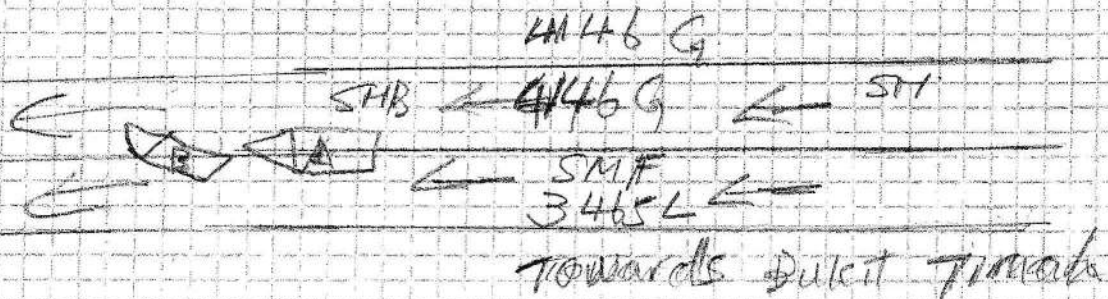 4146 G
SHB 4146 G SH
B A
SMF
3465L
Towards Bukit Timah